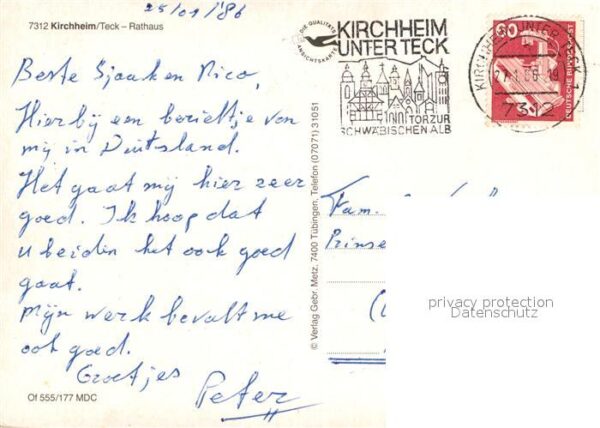 25/01/'86
7312 Kirchheim/Teck – Rathaus
Beste Sjaak en Nico,
Hierbij een berichtje van
mij in Duitsland.
Het gaat mij hier zeer
goed. Ik hoop dat
u beiden het ook goed
gaat.
Mijn werk bevalt me
ook goed.
Groetjes
Peter
Of 555/177 MDC
© Verlag Gebr. Metz, 7400 Tübingen, Telefon (07071) 31051
DIE QUALITÄTS
ANSICHTSKARTE
KIRCHHEIM
UNTER TECK
TOR ZUR
SCHWÄBISCHEN ALB
KIRCHHEIM UNTER TECK 1
27.1.86-19
7312
80
DEUTSCHE BUNDESPOST
Fam.
Prinse
privacy protection
Datenschutz